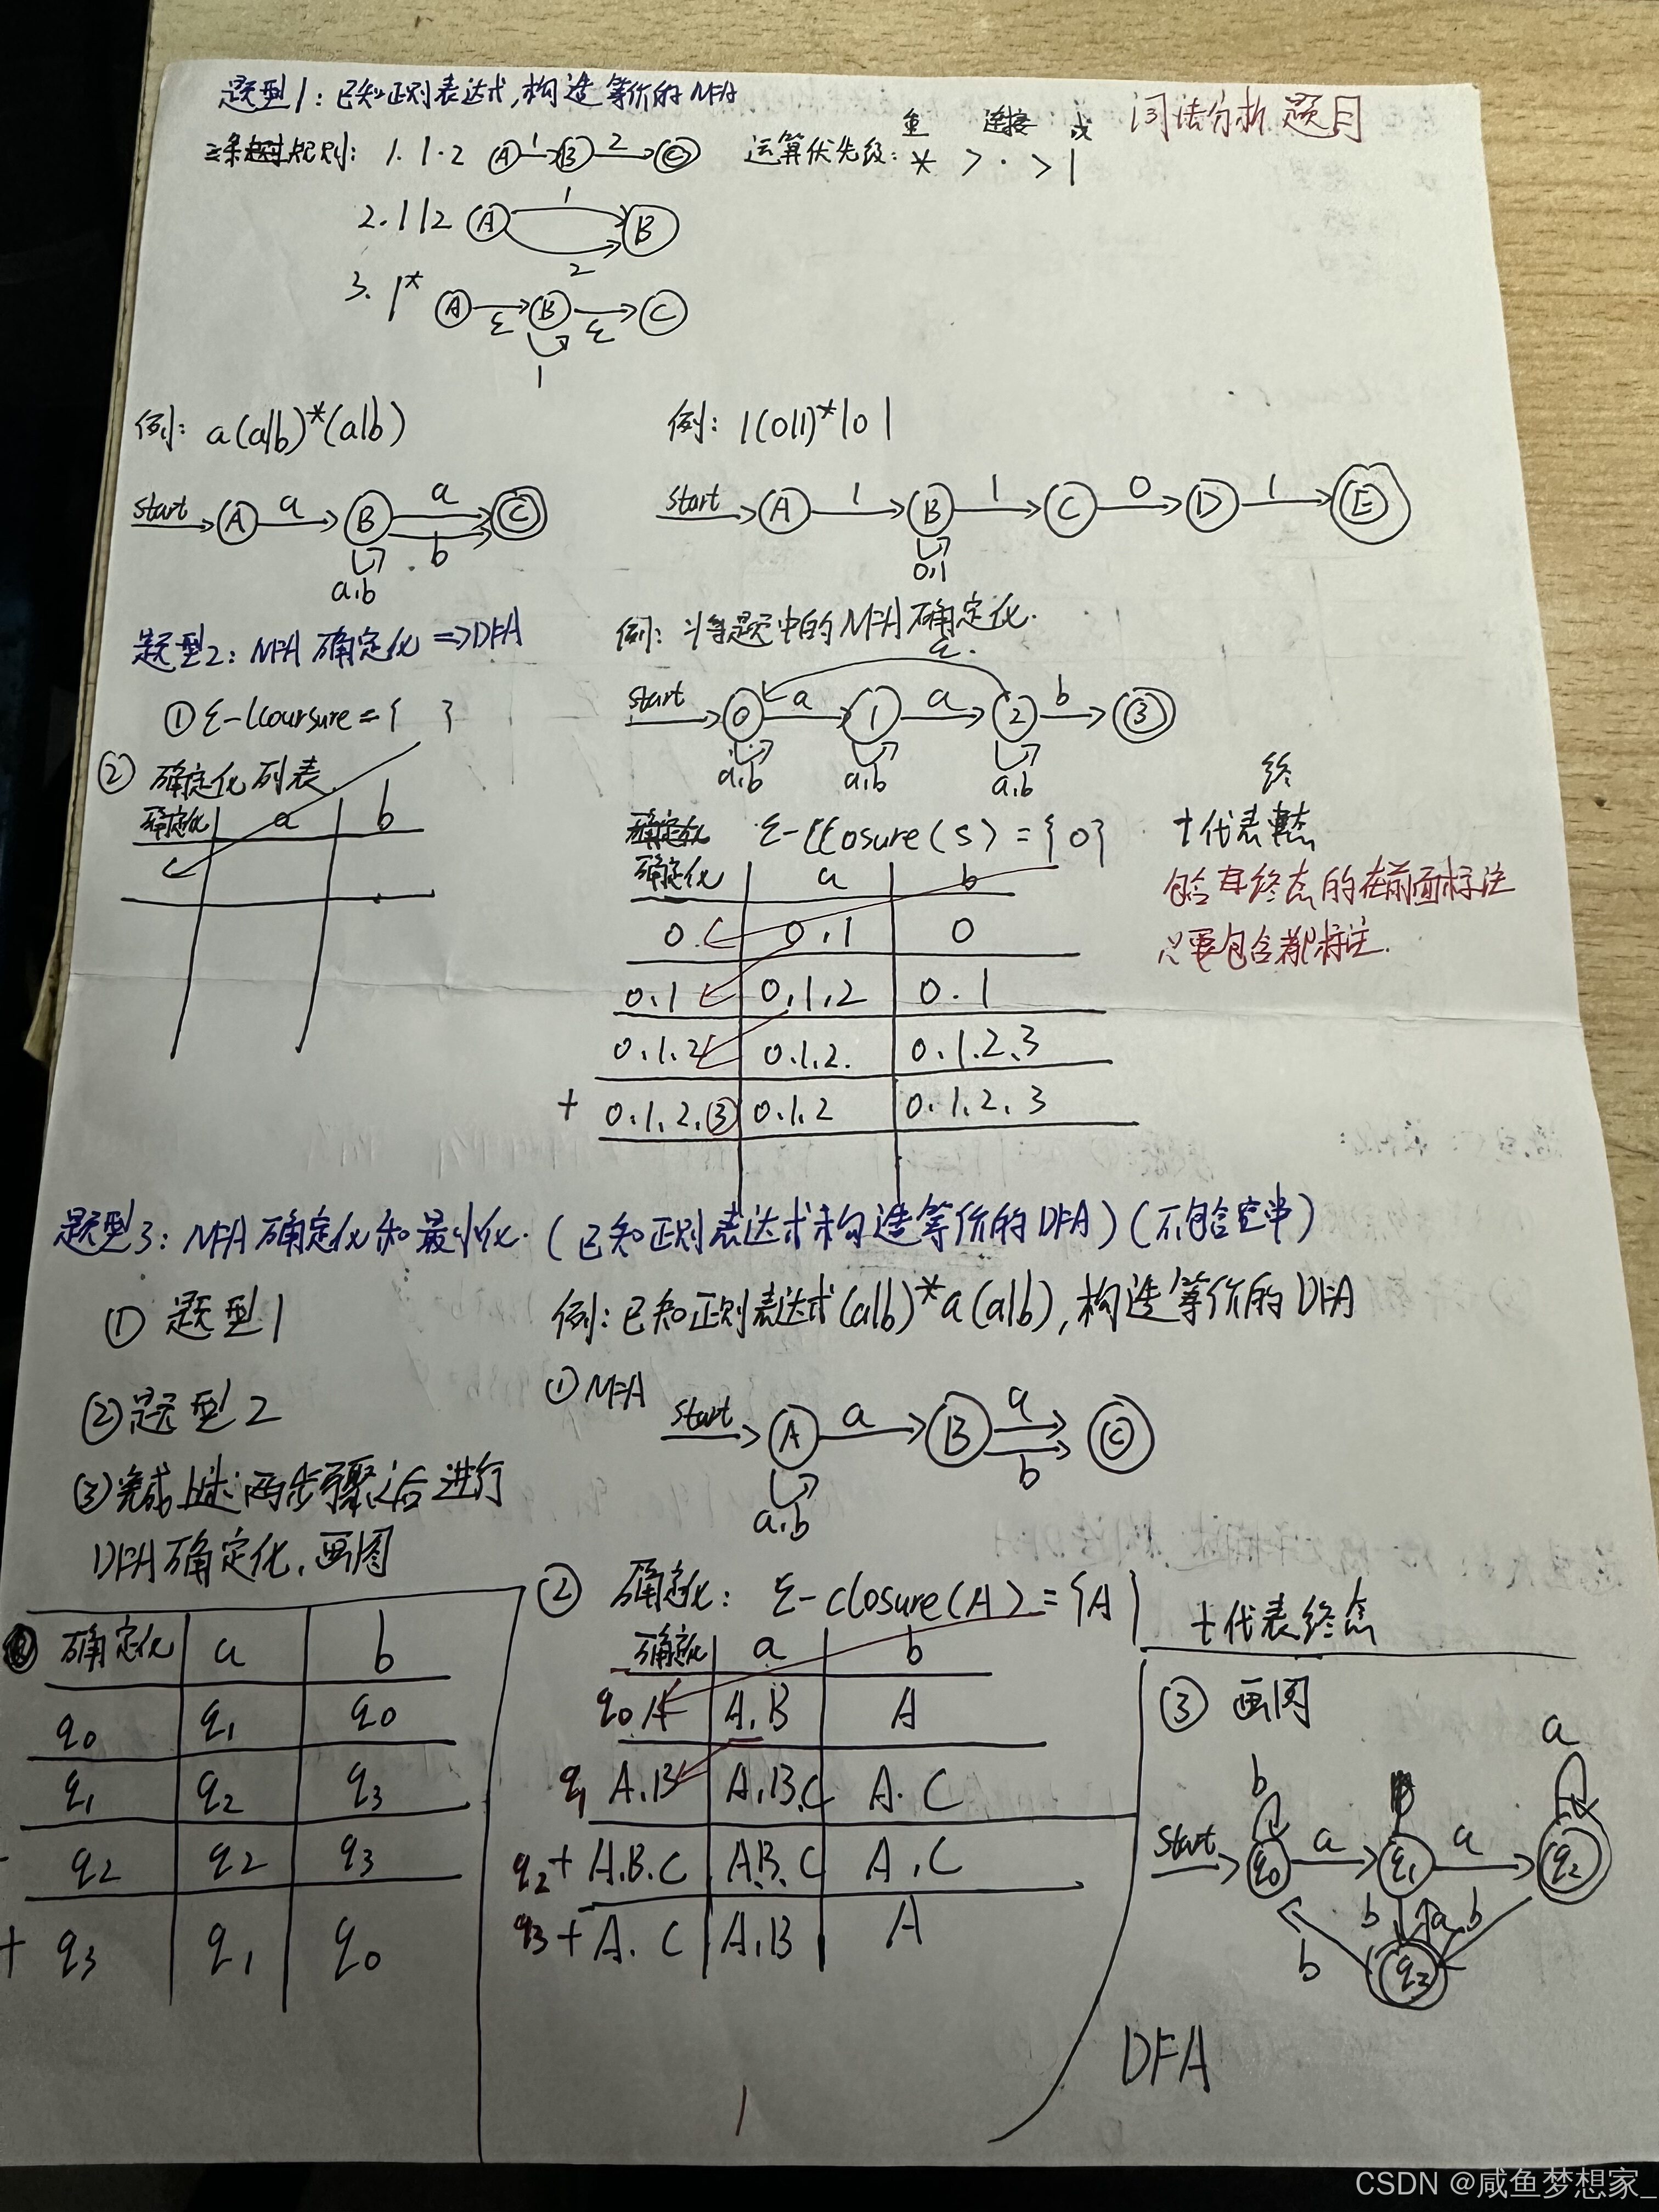 题型1:已知正则表达式,构造等价的NFA
词法分析题目
三条规则: 1. 1·2 A 1 B 2 C 运算优先级: * > · > |
连接 或
2. 1|2 A 1 B
2
3. 1* A ε B ε C
1
例: a(a|b)*(a|b) 例: 1(0|1)*101
start A a B a C start A 1 B 1 C 0 D 1 E
b
a,b 0,1
题型2: NFA 确定化 =>DFA 例: 将题中的NFA确定化.
a
① ε-lcoursure={ } start 0 a 1 a 2 b 3
a,b a,b a,b
② 确定化列表
确定化 a b
终
ε-closure(s)={0} +代表
确定化 a b 包含有终态的在前面标注
0 0,1 0 只要包含都标注.
0.1 0,1,2 0.1
0.1.2 0.1.2. 0.1.2.3
+ 0.1.2.3 0.1.2 0.1.2.3
题型3: NFA 确定化和最小化.(已知正则表达式构造等价的DFA)(不包含空串)
① 题型1 例:已知正则表达式(a|b)*a(a|b),构造等价的DFA
② 题型2 ① NFA start A a B a C
b
a,b
③完成上述两步骤之后进行
DFA确定化,画图
② 确定化: ε-closure(A)={A} +代表终态
确定化 a b
q0 A A.B A
q1 A.B A.B.C A.C
q2+ A.B.C A.B.C A.C
q3+ A.C A.B A
确定化 a b
q0 q1 q0
q1 q2 q3
q2 q2 q3
+ q3 q1 q0
③ 画图
a
b
start q0 a q1 a q2
b a b
b q3
DFA
1
CSDN @咸鱼梦想家_